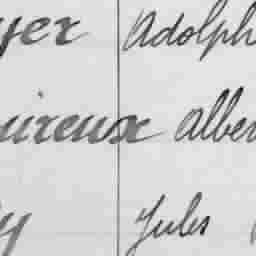 yer Adolph
uireux Alber
y Jules